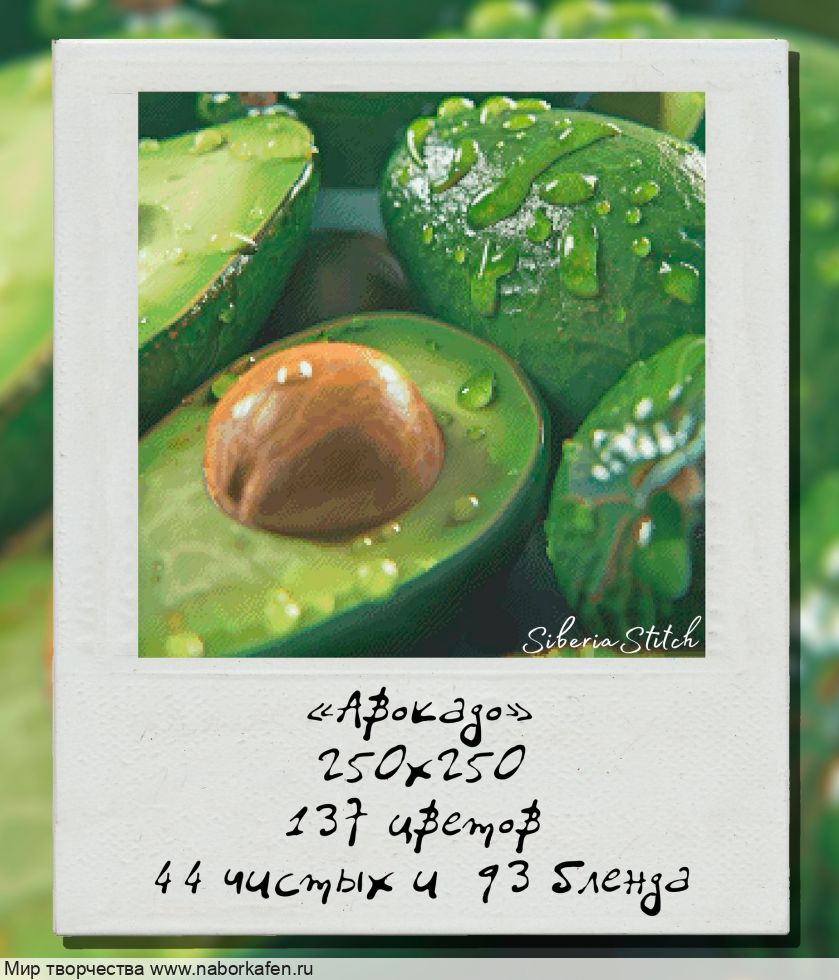 Siberia Stitch
«Авокадо»
250х250
137 цветов
44 чистых и 93 бленда
Мир творчества www.naborkafen.ru